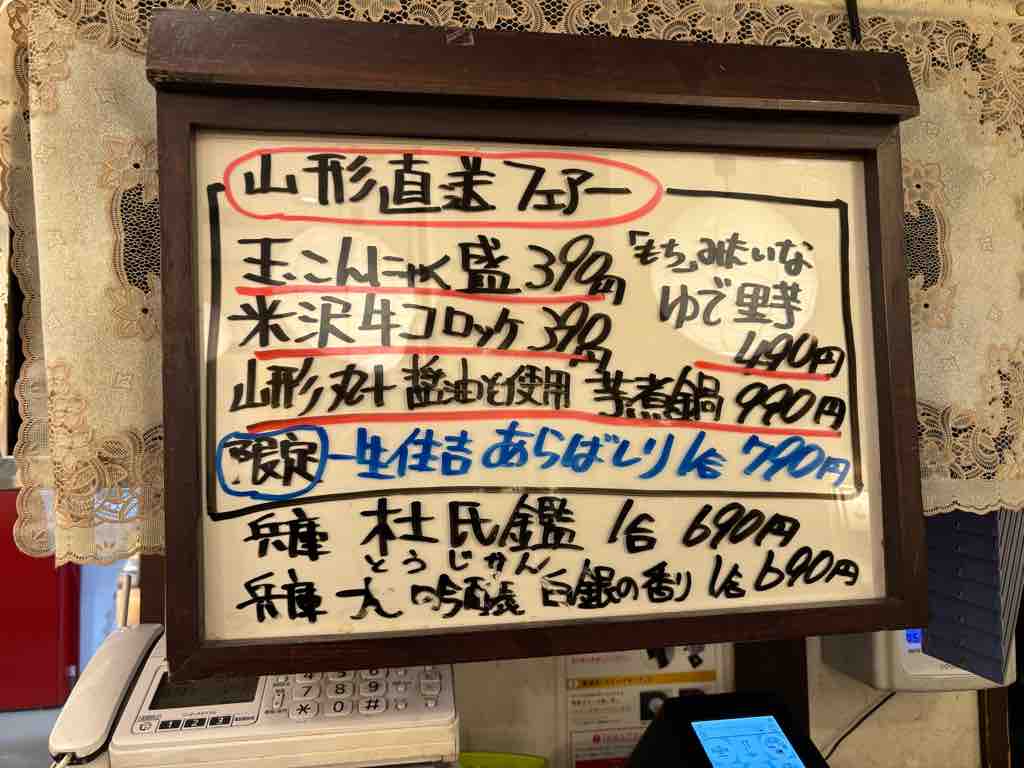 山形直送フェアー
玉こんにゃく盛 390円
「もち」みたいな
ゆで里芋
490円
米沢牛コロッケ 390円
山形丸十醤油を使用 芋煮鍋 990円
限定 生住吉 あらばしり 1合 790円
兵庫 杜氏鑑 1合 690円
とうじかん
兵庫 大吟醸 白銀の香り 1合 690円
4 5 6
7 8 9
* 0 #
1 2 3